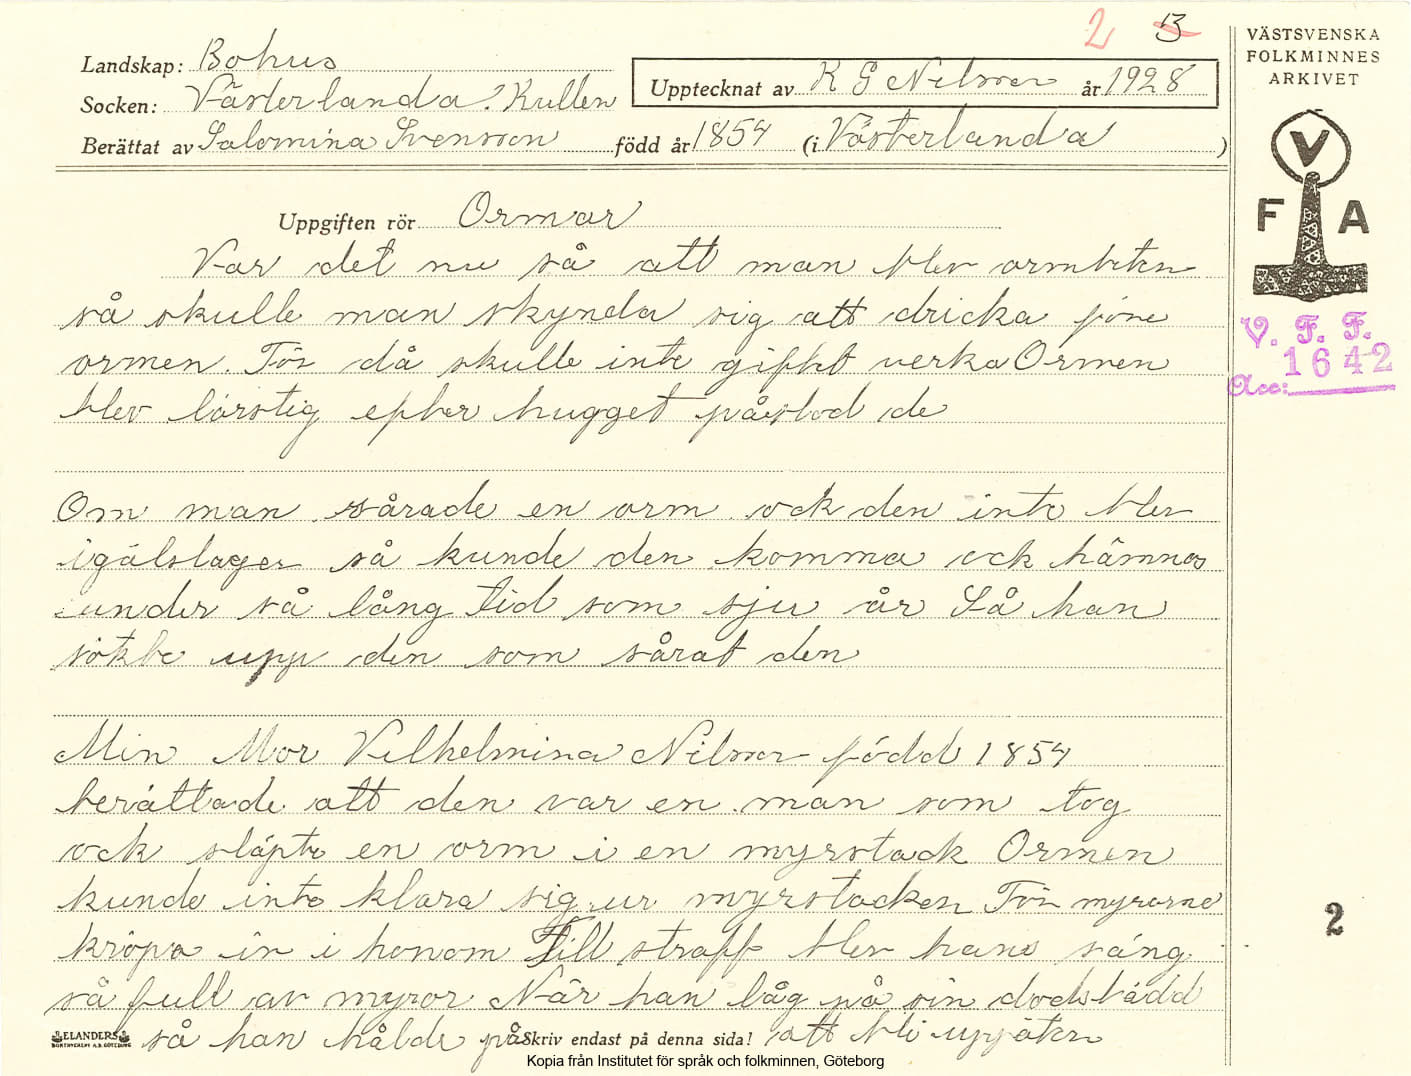 2 B
VÄSTSVENSKA
FOLKMINNES
ARKIVET
Landskap: Bohus
Socken: Västerlanda. Kullen
Upptecknat av K G Nilsson år 1928
Berättat av Salomina Svensson född år 1854 (i Västerlanda)
V
F A
Uppgiften rör Ormar
Var det nu så att man blev ormbiten
så skulle man skynda sig att dricka före
ormen. För då skulle inte giftet verka Ormen
blev törstig efter hugget påstod de
V. F. F.
Acc: 1642
Om man sårade en orm ock den inte blev
igälslagen så kunde den komma ock hämnas
under så lång tid som sju år Så han
sökte upp den som sårat den
Min Mor Vilhelmina Nilsson född 1854
berättade att den var en man som tog
ock släpte en orm i en myrstack Ormen
kunde inte klara sig ur myrstacken För myrorna
kröpo in i honom Till straff blev hans säng
så full av myror När han låg på sin dödsbädd
så han hålde på att bli uppäten
2
ELANDERS
BOKTRYCKERI A.B. GÖTEBORG
Skriv endast på denna sida!
Kopia från Institutet för språk och folkminnen, Göteborg